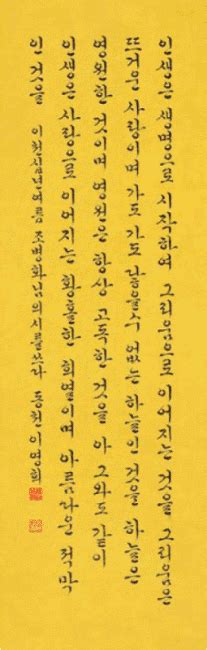 인생은 생명으로 시작하여 그리움으로 이어지는 것을 그리움은
뜨거운 사랑이며 가도 가도 닿을 수 없는 하늘인 것을 하늘은
영원한 것이며 영원은 항상 고독한 것을 아 그와도 같이
인생은 사랑으로 이어지는 황홀한 희열이며 아름다운 적막
인 것을 조병화님의 시를 쓰다 이영희